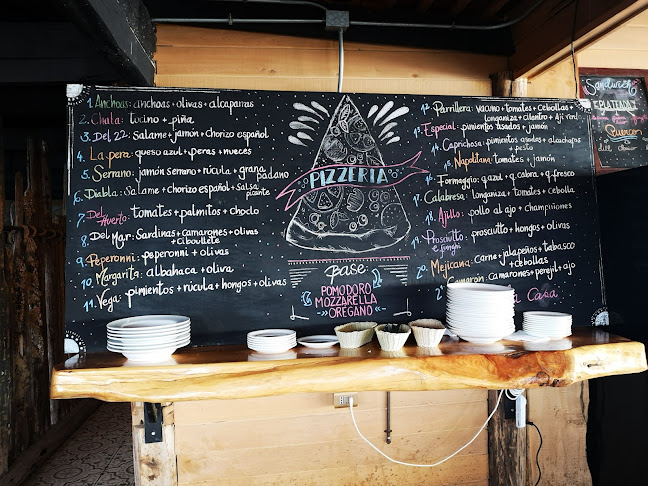 1. Anchoas: anchoas + olivas + alcaparras
2. Chata: tocino + piña
3. Del 22: Salame + jamón + Chorizo español
4. La pera: queso azul + peras + nueces
5. Serrano: jamón serrano + rúcula + grana padano
6. Diabla: Salame + chorizo español + Salsa picante
7. Del Huerto: tomates + palmitos + choclo
8. Del Mar: Sardinas + camarones + olivas + Ciboullete
9. Peperonni: peperonni + olivas
10. Margarita: albahaca + oliva
11. Vega: pimientos + rúcula + hongos + olivas
PIZZERIA
Base
POMODORO
MOZZARELLA
OREGANO
12. Parrillera: vacuno + tomates + cebollas
longaniza + cilantro + Ají verde
13. Especial: pimientos asados + jamón
14. Caprichosa: pimientos asados + alcachofas
+ pesto
15. Napolitana: tomates + jamón
16. Formaggio: q.azul + q.cabra + q.fresco
17. Calabresa: longaniza + tomates + cebolla
18. Ajillo: pollo al ajo + champiñones
19. Prosciutto e funghi: prosciutto + hongos + olivas
20. Mejicana: carne + jalapeños + tabasco
+ cebollas
Camarón: camarones + perejil + ajo
Casa
Sandwich